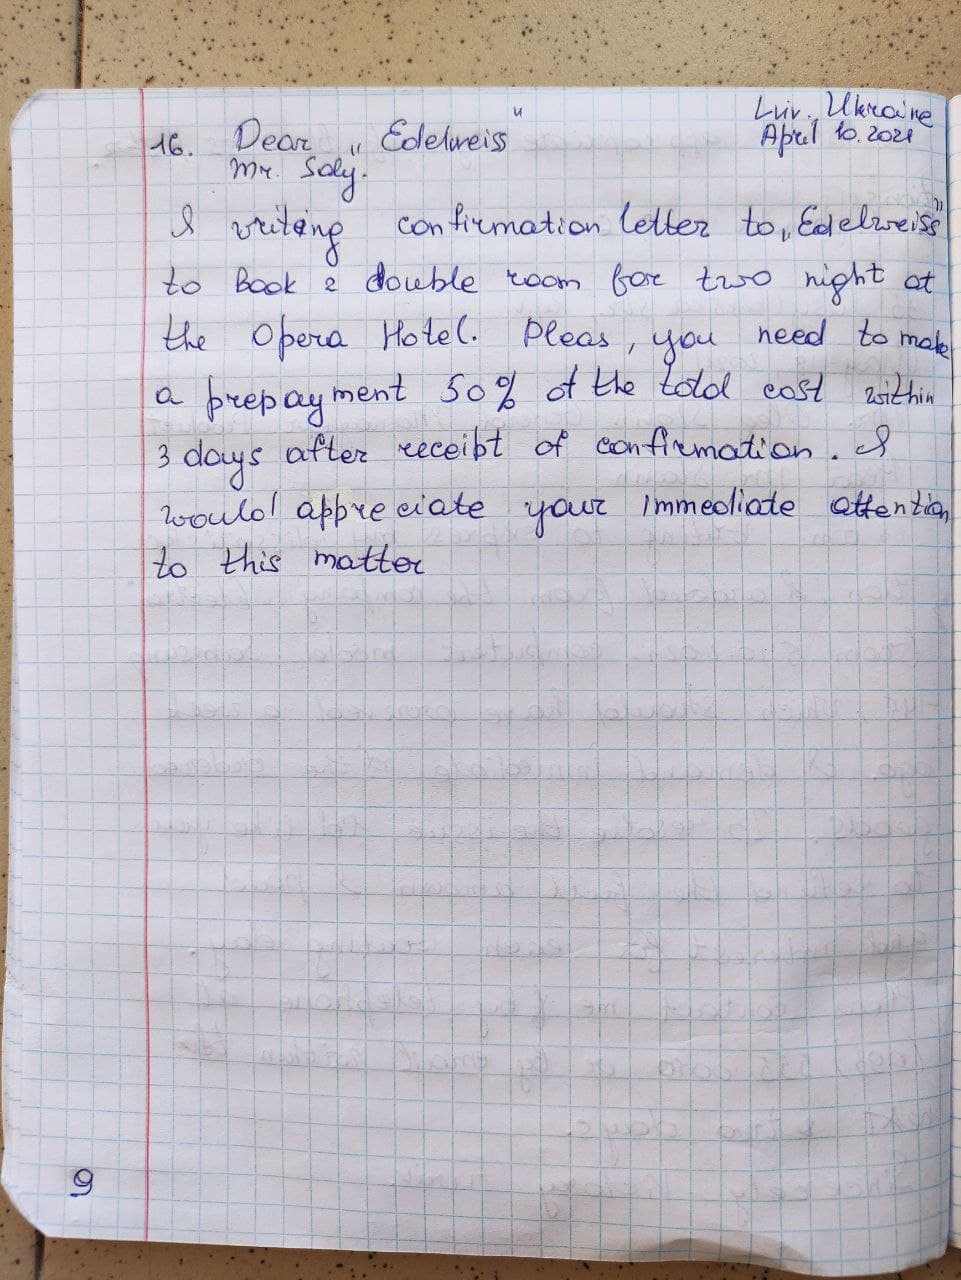 Lviv, Ukraine
April 10.2021
16. Dear „ Edelweiss"
Mr. Saly.
I writing confirmation letter to „Edelweiss"
to Book 2 double room for two night at
the Opera Hotel. Pleas, you need to make
a prepayment 50% of the total cost within
3 days after receipt of confirmation. I
would appreciate your immediate attention
to this matter
9